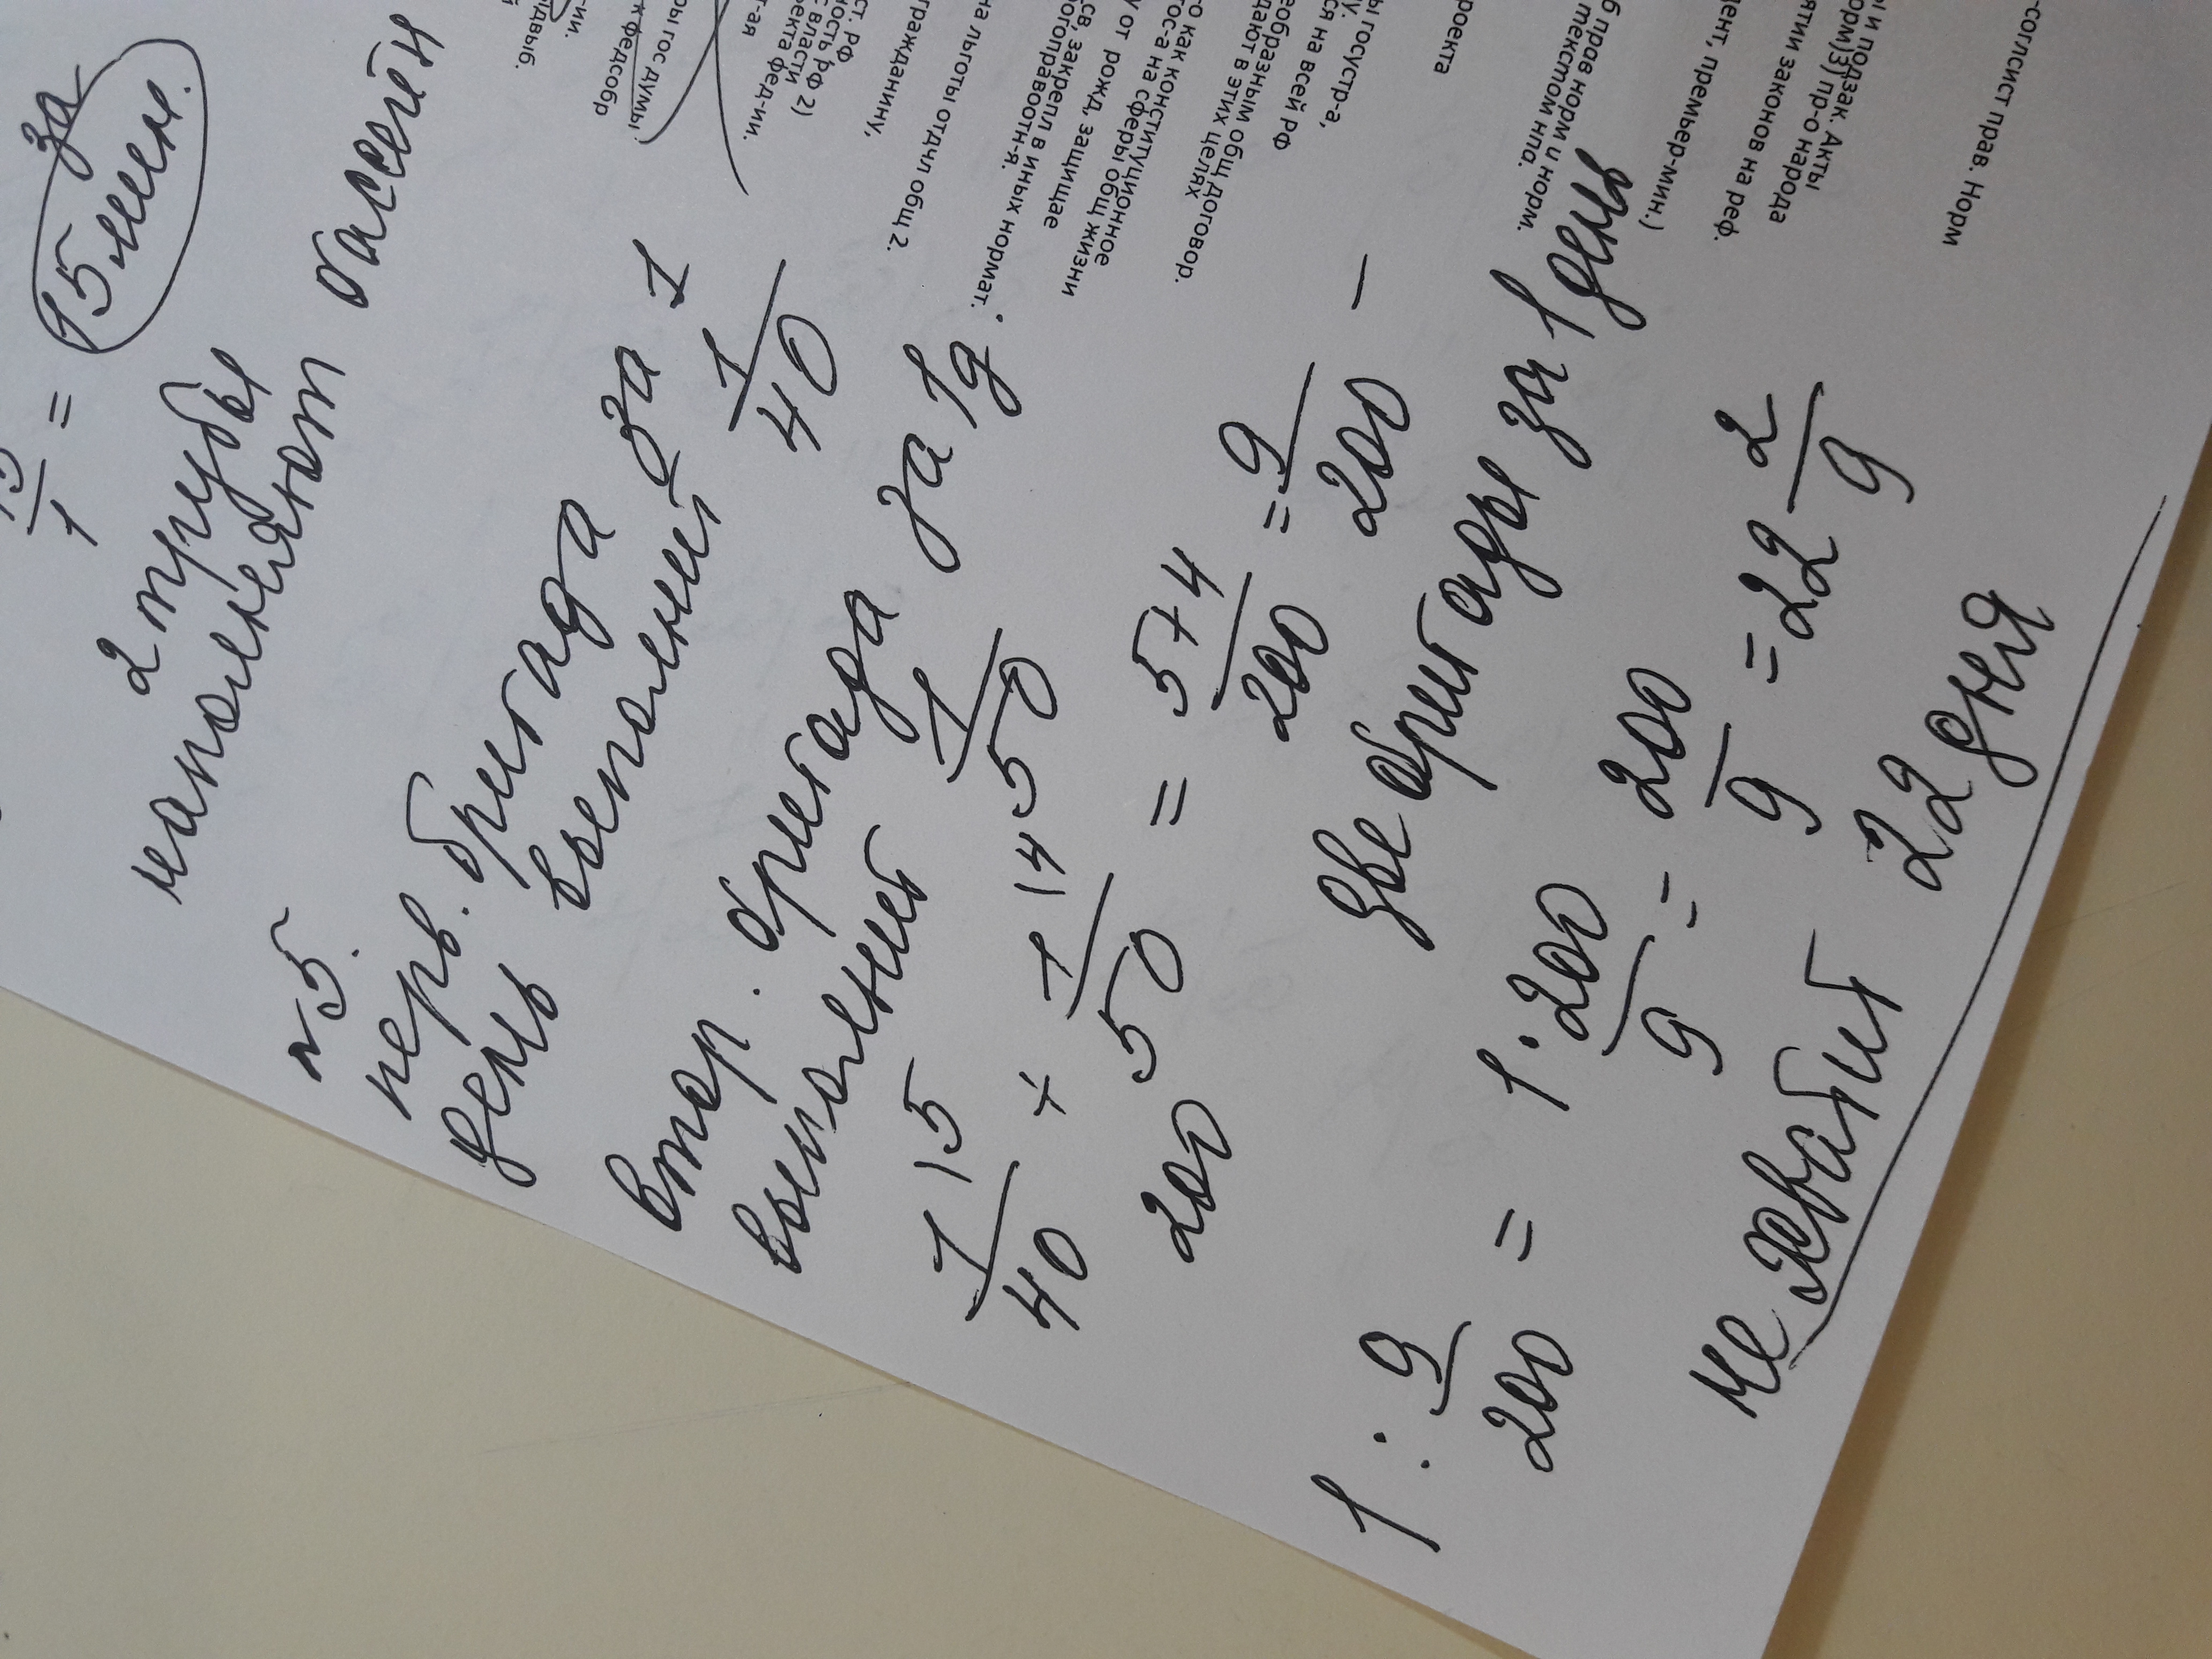 15
— =
1
за
15 мин.
2 трубы
наполняют бассейн
№5.
перв. бригада за 1
день выполнит 1/40
втор. бригада за 1д.
выполнит 1/50
1/40 |5 + 1/50 |4 = 5+4/200 = 9/200 –
200
две бригады за 1 день
1 : 9/200 = 1·200/9 = 200/9 = 22 2/9
не хватит 22 дня
-согласит прав. Норм
ы и подзак. Акты
орм)3) пр-о народа
ятии законов на реф.
ент, премьер-мин.)
б прав норм и норм.
текстом нпа.
роекта
ы госустр-а,
у.
ся на всей РФ
еобразным общ договор.
дают в этих целях
-о как конституционное
гос-а на сферы общ жизни
у от рожд, защищае
св, закрепл в иных нормат.
огоправоотн-я.
на льготы отдчл общ 2.
гражданину,
ст. РФ
ность РФ 2)
с власти
екта фед-ии.
т-ая
ры гос думы
к федсобр
-ии.
ідвыб.